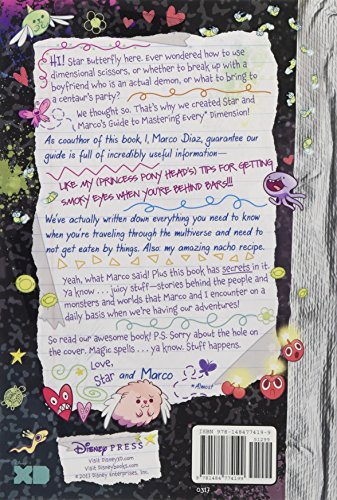 HI! Star Butterfly here. Ever wondered how to use
dimensional scissors, or whether to break up with a
boyfriend who is an actual demon, or what to bring to
a centaur's party?
We thought so. That's why we created Star and
Marco's Guide to Mastering Every* Dimension!
As coauthor of this book, I, Marco Diaz, guarantee our
guide is full of incredibly useful information—
LIKE MY (PRINCESS PONY HEAD'S) TIPS FOR GETTING
SMOKY EYES WHEN YOU'RE BEHIND BARS!!!
We've actually written down everything you need to know
when you're traveling through the multiverse and need to
not get eaten by things. Also: my amazing nacho recipe.
Yeah, what Marco said! Plus this book has secrets in it.
Ya know . . . juicy stuff—stories behind the people and
monsters and worlds that Marco and I encounter on a
daily basis when we're having our adventures!
So read our awesome book! P.S. Sorry about the hole on
the cover. Magic spells . . . ya know. Stuff happens.
Love,
Star and Marco
*Almost
Disney PRESS
Visit DisneyXD.com
Visit Disneybooks.com
©2017 Disney Enterprises, Inc.
Disney XD
0317
ISBN 978-148477419-9
51299
9 781484 774199